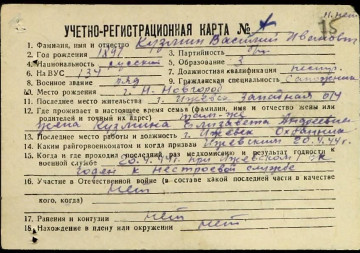 УЧЕТНО-РЕГИСТРАЦИОННАЯ КАРТА №
1. Фамилия, имя и отчество Кузьмин Василий Иванович
2. Год рождения 1897 3. Партийность б/п
4. Национальность русский 5. Образование 3
6. На ВУС 134 7. Должностная квалификация
8. Военное звание ряд 9. Гражданская специальность Сапожник
10. Место рождения г. Н-Новгород
11. Последнее место жительства г. Ижевск Западная
12. Где проживает в настоящее время семья (фамилия, имя и отчество жены или
родителей и точный их адрес) там-же
жена Кузьмина Елизавета Андреевна
13. Последнее место работы и должность г. Ижевск
14. Каким райгорвоенкоматом и когда призван Ижевским 20.4.44г.
15. Когда и где проходил последний раз медкомиссию и результат годности к
военной службе 20.4.44г. при Ижевском
годен к нестроевой службе
16. Участие в Отечественной войне (в составе какой последней части в качестве
кого, когда) нет
17. Ранения и контузии нет
18. Нахождение в плену или окружении нет